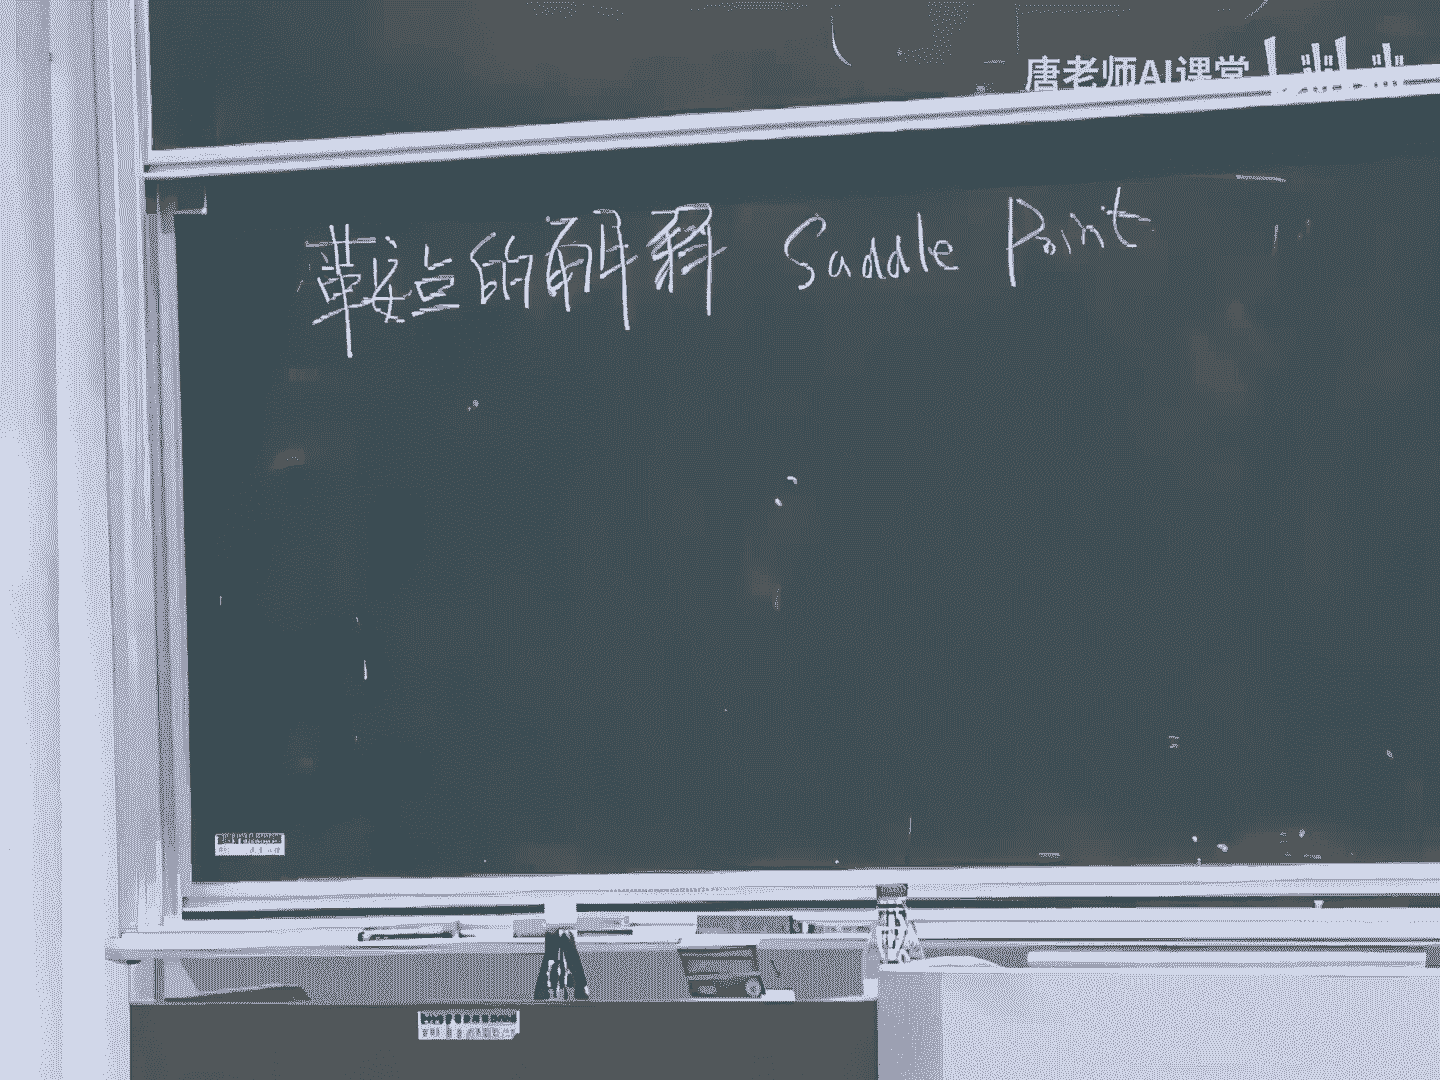 唐老师AI课堂
鞍点的解释 Saddle Point